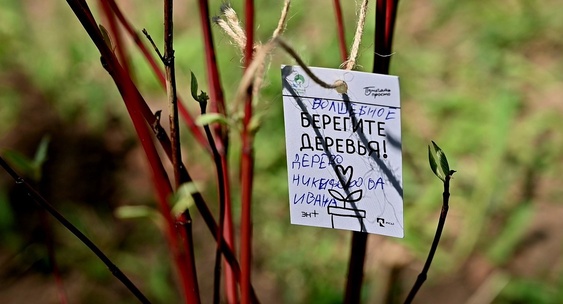 ВОЛШЕБНОЕ
БЕРЕГИТЕ
ДЕРЕВЬЯ!
ДЕРЕВО
ИВАНА
ЭН+